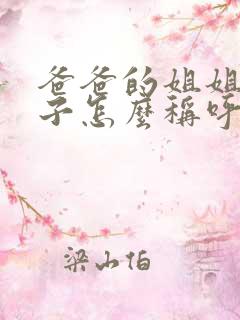 爸爸的姐姐
子怎麼稱呼
梁山伯